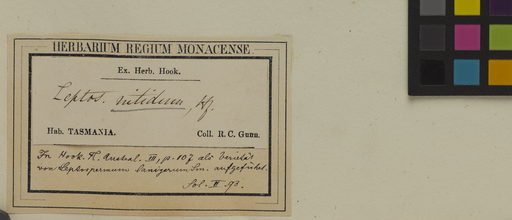 HERBARIUM REGIUM MONACENSE
Ex. Herb. Hook.
Leptos. nitidum, Hf.
Hab. TASMANIA. Coll. R. C. Gunn.
In Hook. Fl. Austral. III, p. 107 als Varietät
von Leptospermum lanigerum Sm. aufgeführt.
93.